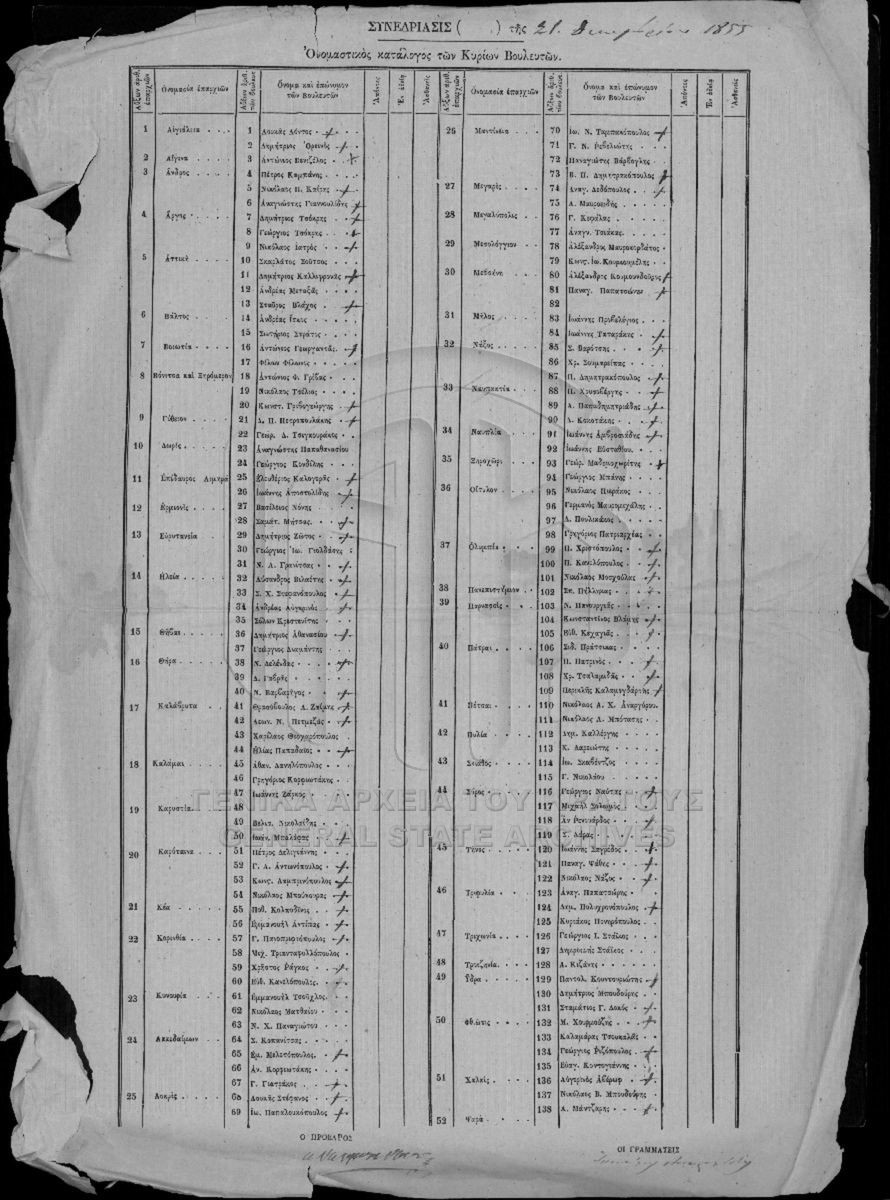 ΣΥΝΕΔΡΙΑΣΙΣ ( ) τῆς 21 Δεκεμβρίου 1855
Ὀνομαστικὸς κατάλογος τῶν Κυρίων Βουλευτῶν.
Αὔξων ἀριθ. ἐπαρχιῶν Ὀνομασία ἐπαρχιῶν Αὔξων ἀριθ. τῶν βουλευτ. Ὄνομα καὶ ἐπώνυμον τῶν Βουλευτῶν Ἀπόντες Ἐν ἀδείᾳ Ἀσθενεῖς
1 Αἰγιάλεια 1 Λουκᾶς Δόντος
2 Δημήτριος Ὀρεινὸς
2 Αἴγινα 3 Ἀντώνιος Βενιζέλος
3 Ἄνδρος 4 Πέτρος Καμπάνης
5 Νικόλαος Π. Καΐρης
6 Ἀναγνώστης Γιαννουλίδης
4 Ἄργος 7 Δημήτριος Τσόκρης
8 Γεώργιος Τσόκρης
9 Νικόλαος Ἰατρὸς
5 Ἀττικὴ 10 Σκαρλάτος Σοῦτσος
11 Δημήτριος Καλλιφρονᾶς
12 Ἀνδρέας Μεταξᾶς
13 Σταῦρος Βλάχος
6 Βάλτος 14 Ἀνδρέας Ἴσκος
15 Σωτήριος Στράτος
7 Βοιωτία 16 Ἀντώνιος Γεωργαντᾶς
17 Φίλων Φίλωνος
8 Βόνιτσα καὶ Ξηρόμερον 18 Ἀντώνιος Φ. Γρίβας
19 Νικόλαος Τσέλιος
20 Κωνστ. Γριβογεώργης
9 Γύθειον 21 Δ. Π. Πετροπουλάκης
22 Γεώρ. Δ. Τσιγκουράκος
10 Δωρὶς 23 Ἀναγνώστης Παπαθανασίου
24 Γεώργιος Κονδύλης
11 Ἐπίδαυρος Λιμηρὰ 25 Ἐλευθέριος Καλογερᾶς
26 Ἰωάννης Ἀποστολίδης
12 Ἑρμιονὶς 27 Βασίλειος Νόνης
28 Σαμάτ. Μήτσας
13 Εὐρυτανία 29 Δημήτριος Ζῶτος
30 Γεώργιος Ἰω. Γιολδάσης
31 Ν. Λ. Γρανίτσας
14 Ἠλεία 32 Λύσανδρος Βιλαέτης
33 Σ. Χ. Στεφανόπουλος
34 Ἀνδρέας Αὐγερινὸς
35 Σόλων Κρεστενίτης
15 Θῆβαι 36 Δημήτριος Ἀθανασίου
37 Γεώργιος Διαμάντης
16 Θήρα 38 Ν. Δελένδας
39 Δ. Γαβρᾶς
40 Ν. Βαρβαρῆγος
17 Καλάβρυτα 41 Θρασύβουλος Α. Ζαΐμης
42 Λεων. Ν. Πετμεζᾶς
43 Χαρίλαος Θεοχαρόπουλος
44 Ἠλίας Παπαδαῖος
18 Καλάμαι 45 Ἀθαν. Δανηλόπουλος
46 Γρηγόριος Κορφιωτάκης
47 Ἰωάννης Ζάρκος
19 Καρυστία 48
49 Βελισ. Νικολαΐδης
50 Ἰωάν. Μπαλάφας
20 Καρύταινα 51 Πέτρος Δεληγιάννης
52 Γ. Α. Ἀντωνόπουλος
53 Κωνς. Λαμπρινόπουλος
54 Νικόλαος Μπούκουρας
21 Κέα 55
56 Ἐμμανουὴλ Ἀντίπας
22 Κορινθία 57 Γ.
58 Μιχ. Τριανταφυλλόπουλος
59 Χρῆστος Ράγκος
60 Εὐθ. Κανελόπουλος
23 Κυνουρία 61 Ἐμμανουὴλ Τσοῦχλος
62 Νικόλαος Ματθαίου
63 Ν. Χ. Παναγιώτου
24 Λακεδαίμων 64 Σ. Κοπανίτσας
65 Ἐμ. Μελετόπουλος
66 Ἀν. Κορφιωτάκης
67 Γ. Γιατράκος
25 Λοκρὶς 68 Λουκᾶς Στέφανος
69 Ἰω. Παπαλουκόπουλος
Αὔξων ἀριθ. ἐπαρχιῶν Ὀνομασία ἐπαρχιῶν Αὔξων ἀριθ. τῶν βουλευτ. Ὄνομα καὶ ἐπώνυμον τῶν Βουλευτῶν Ἀπόντες Ἐν ἀδείᾳ Ἀσθενεῖς
26 Μαντίνεια 70 Ἰω. Ν. Ταμπακόπουλος
71 Γ. Ν. Ρεβελιώτης
72 Παναγιώτης Βάρβογλης
73 Β. Π. Δημητρακόπουλος
27 Μεγαρὶς 74 Ἀναγ. Δεδόπουλος
75 Α. Μαυροειδῆς
28 Μεγαλόπολις 76 Γ. Κεφάλας
77 Ἀναγν. Τσιάκας
29 Μεσολόγγιον 78 Ἀλέξανδρος Μαυροκορδάτος
79 Κωνς. Ἰω. Κουμουμέλης
30 Μεσσήνη 80 Ἀλέξανδρος Κουμουνδοῦρος
81 Παναγ. Παπατσώνης
82
31 Μῆλος 83 Ἰωάννης Πριβελέγιος
84 Ἰωάννης Ταταράκης
32 Νάξος 85 Σ. Βαρότσης
86 Χρ. Σουμαρείπας
87 Π. Δημητρακόπουλος
33 Ναυπακτία 88 Π. Χρυσοβέργης
89 Α. Παπαδημητριάδης
90 Δ. Κοκοτάκης
34 Ναυπλία 91 Ἰωάννης Ἀμβροσιάδης
92 Ἰωάννης Εὐσταθίου
35 Ξηροχώρι 93 Γεώρ. Μαδεμοχωρίτης
94 Γεώργιος Μπάνης
36 Οἴτυλον 95 Νικόλαος Πιεράκος
96 Γερμανὸς Μαυρομιχάλης
97 Δ. Πουλικάκος
98 Γρηγόριος Πατριαρχέας
37 Ὀλυμπία 99 Π. Χριστόπουλος
100 Π. Κανελόπουλος
101 Νικόλαος Μοσχούλας
38 Πανεπιστήμιον 102 Σπ. Πήλληκας
39 Παρνασὶς 103 Ν. Πανουργιᾶς
104 Κωνσταντῖνος Βλάμης
105 Εὐθ. Κεχαγιᾶς
40 Πάτραι 106 Σιδ. Πράτσικας
107 Π. Πατρινὸς
108 Χρ. Τσαλαμιδᾶς
109 Περικλῆς Καλαμογδάρτης
41 Πέτσαι 110 Νικόλαος Α. Χ. Ἀναργύρου
111 Νικόλαος Λ. Μπότασης
42 Πυλία 112 Δημ. Καλλέργης
113 Χ. Δαρειώτης
43 Σκιάθος 114 Ἰω. Σκαβέντζος
115 Γ. Νικολάου
44 Σύρος 116 Γεώργιος Ναύτης
117 Μιχαὴλ Σολωμὸς
118 Ἀν Ρενιυάρδος
119 Σ. Λάρας
45 Τῆνος 120 Ἰωάννης Σαγρέδος
121 Παναγ. Ψάθης
122 Νικόλαος Νάζος
46 Τριφυλία 123 Ἀναγ. Παπατσώρης
124 Δημ. Πολυχρονόπουλος
125 Κυριάκος Πονηρόπουλος
47 Τριχωνία 126 Γεώργιος Ι. Στάϊκος
127 Στάϊκος
48 Τροιζηνία 128 Α. Κιζάνης
49 Ὕδρα 129 Πανταλ. Κουντουριώτης
130 Δημήτριος Μπουδούρης
131 Σταμάτιος Γ. Δοκὸς
50 Φθιῶτις 132 Μ. Χουρμούζης
133 Καλαμάρας Τσουκαλᾶς
134 Γεώργιος Ριζόπουλος
135 Εὐαγ. Κοντογιάννης
51 Χαλκὶς 136 Αὐγερινὸς Ἀβέρωφ
137 Νικόλαος Β. Μπουδούρης
138 Α. Μάντζαρης
52 Ψαρὰ
Ο ΠΡΟΕΔΡΟΣ
ΟΙ ΓΡΑΜΜΑΤΕΙΣ
ΓΕΝΙΚΑ ΑΡΧΕΙΑ ΤΟΥ ΚΡΑΤΟΥΣ
GENERAL STATE ARCHIVES